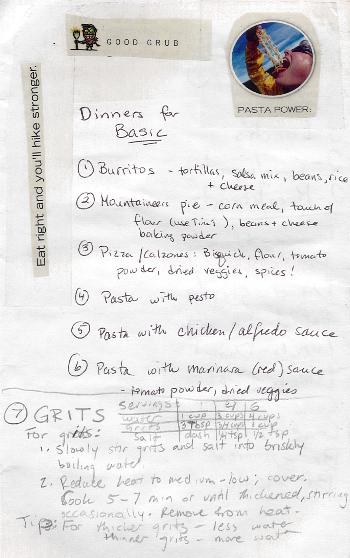 GOOD GRUB
PASTA POWER:
Eat right and you'll hike stronger.
Dinners for
Basic
① Burritos - tortillas, salsa mix, beans, rice
+ cheese
② Mountaineers pie - corn meal, touch of
flour (use Tim's), beans + cheese
baking powder
③ Pizza/calzones: Bisquick, flour, tomato
powder, dried veggies, spices!
④ Pasta with pesto
⑤ Pasta with chicken/alfredo sauce
⑥ Pasta with marinara (red) sauce
- tomato powder, dried veggies
⑦ GRITS
Servings 1 4 6
Water 1 cup 3 cups 4 cups
Grits 3 Tbsp 3/4 cup 1 cup
Salt dash 1/4 tsp 1/2 tsp
For grits:
1. Slowly stir grits and salt into briskly
boiling water
2. Reduce heat to medium-low; cover.
Cook 5-7 min or until thickened, stirring
occasionally. Remove from heat.
Tips: For thicker grits - less water
thinner grits - more water